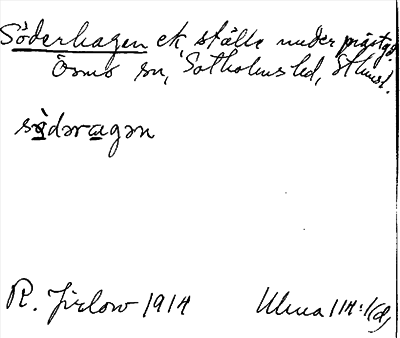 Söderhagen ek, ställe under prästgd.
Ösmo sn, Sotholms hd, Sthmsl.
sø̀dəragən
R. Jirlow 1914 Ulma 114:1(d)